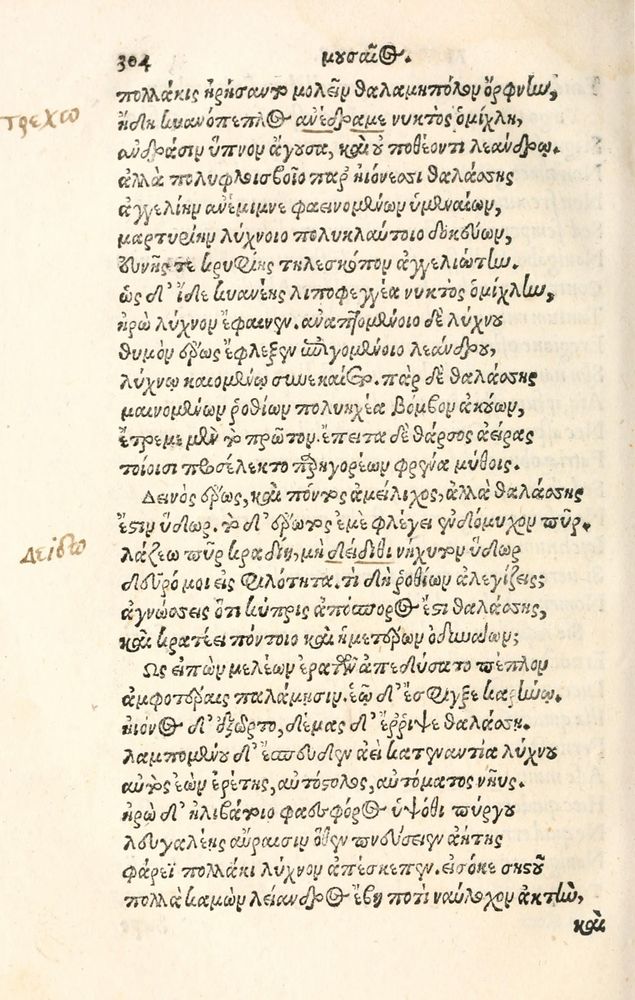 304 μουσαῖος.
πολλάκις ἠρήσαντο μολεῖν θαλαμηπόλον ὄρφνην,
τρεχω
ἤδη κυανόπεπλος ανέδραμε νυκτὸς ὁμίχλη,
ανδράσιν ὕπνον ἄγουσα, καὶ ου ποθέοντι λεάνδρῳ.
ἀλλὰ πολυφλοισβοῖο παρ' ηϊόνεσσι θαλάσσης
ἀγγελίην ανέμιμνε φαεινομένων ὑμεναίων,
μαρτυρίην λύχνοιο πολυκλαύτοιο δοκεύων,
ευνῆς τε κρυφίης τηλεσκόπον ἀγγελιώτην.
ὡς δ' ἴδε κυανέης λιποφεγγέα νυκτὸς ὁμίχλην,
ηρὼ λύχνον ἔφαινεν. αναπτομένοιο δὲ λύχνου
θυμὸν ἔρως ἔφλεξεν ἐπειγομένοιο λεάνδρου,
λύχνῳ καιομένῳ συνεκαίετο. πὰρ δὲ θαλάσσης
μαινομένων ῥοθίων πολυηχέα βόμβον ἀκούων,
ἔτρεμε μὲν το πρῶτον. ἔπειτα δὲ θάρσος ἀείρας
τοίοισι προσέλεκτο παρηγορέων φρένα μύθοις.
Δεινὸς ἔρως, καὶ πόντος ἀμείλιχος, ἀλλὰ θαλάσσης
ἔστιν ὕδωρ. το δ' ἔρωτος ἐμὲ φλέγει ενδόμυχον πῦρ.
Δείδω
λάζεω πῦρ κραδίη, μὴ δείδιθι νήχυτον ὕδωρ
δεῦρό μοι εἰς φιλότητα. τι δὴ ῥοθίων ἀλεγίζεις;
ἀγνώσσεις ὅτι κύπρις ἀπόσπορος ἔστι θαλάσσης,
καὶ κρατέει πόντοιο καὶ ἡμετέρων ὀδυνάων;
Ως ειπὼν μελέων ἐρατῶν ἀπεδύσατο πέπλον
ἀμφοτέραις παλάμησιν. ἑῷ δ' ἔσφιγξε καρήνῳ.
ηϊόνος δ' ἐξῶρτο, δέμας δ' ἔρριψε θαλάσσῃ.
λαμπομένου δ' ἔσπευδεν ἀεὶ κατεναντία λύχνου
αυτὸς ἐὼν ἐρέτης, αυτόστολος, αυτόματος νηῦς.
ηρὼ δ' ἠλιβάτοιο φαεσφόρος ὑψόθι πύργου
λευγαλέης αὔραισιν ὅθεν πνεύσειεν ἀήτης
φάρεϊ πολλάκι λύχνον ἀπέσκεπεν. εισόκε σηστοῦ
πολλὰ καμὼν λείανδρος ἔβη ποτὶ ναύλοχον ἀκτὴν,
καὶ